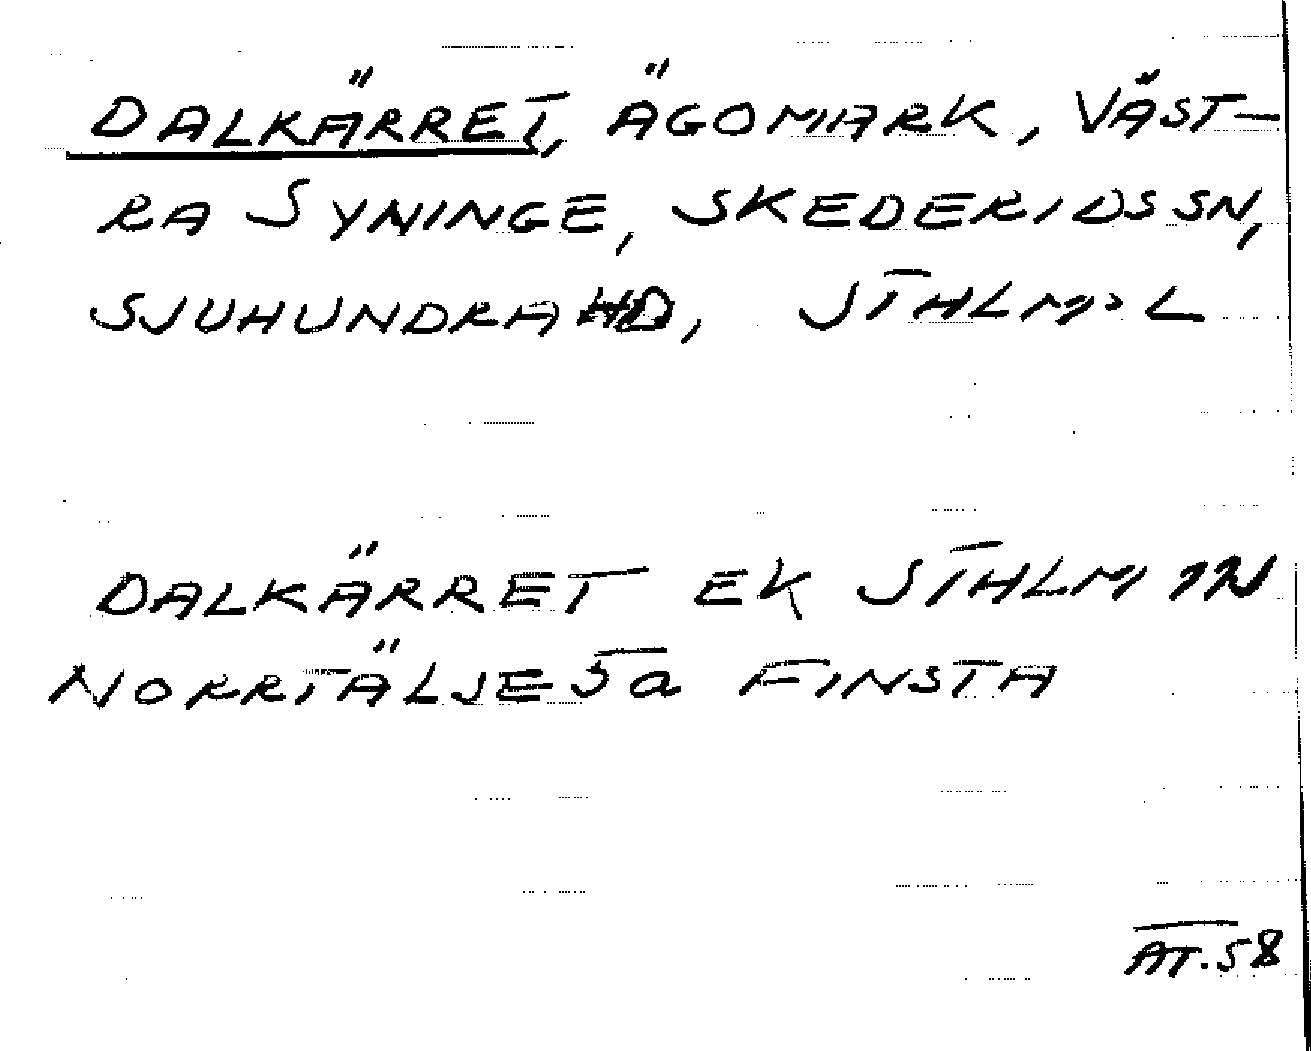 DALKÄRRET, ÄGOMARK, VÄST-
RA SYNINGE, SKEDERIDS SN,
SJUHUNDRA HD, STHLMS L
DALKÄRRET EK STHLM 1N
NORRTÄLJE 5a FINSTA
AT. 58